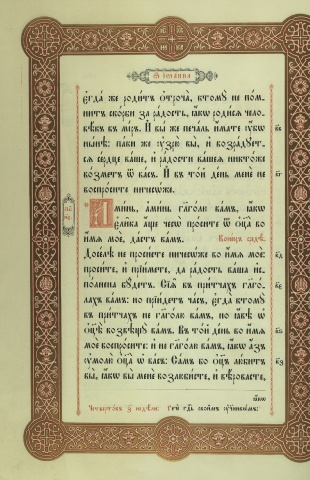 Ѿ Іѡанна
егда же родитъ отроча, ктомꙋ не пом-
нитъ скорби за радость, ꙗкѡ родисѧ чело-
вѣкъ въ міръ. И вы же печаль имате ᲂубѡ
нынѣ: паки же ᲂузрю вы, и возрадꙋет-
сѧ сердце ваше, и радости вашеѧ никтоже
возметъ ѿ васъ. И въ той день мене не
воспросите ничесѡже.
Аминь, аминь глаголю вамъ, ꙗкѡ
елика аще чесѡ просите ѿ Оц҃а во
имѧ мое, дастъ вамъ. Конецъ средѣ.
Доселѣ не просисте ничесѡже во имѧ мое:
просите, и пріимете, да радость ваша ис-
полнена бꙋдетъ. Сіѧ въ притчахъ глаго-
лахъ вамъ: но пріидетъ часъ, егда ктомꙋ
въ притчахъ не глаголю вамъ, но ꙗвѣ ѡ
Оц҃ѣ возвѣщꙋ вамъ. Въ той день во имѧ
мое воспросите: и не глаголю вамъ, ꙗкѡ азъ
ᲂумолю Оц҃а ѡ васъ: Самъ бо Оц҃ъ любитъ
вы, ꙗкѡ вы мене возлюбисте, и вѣровасте,
ꙗкѡ